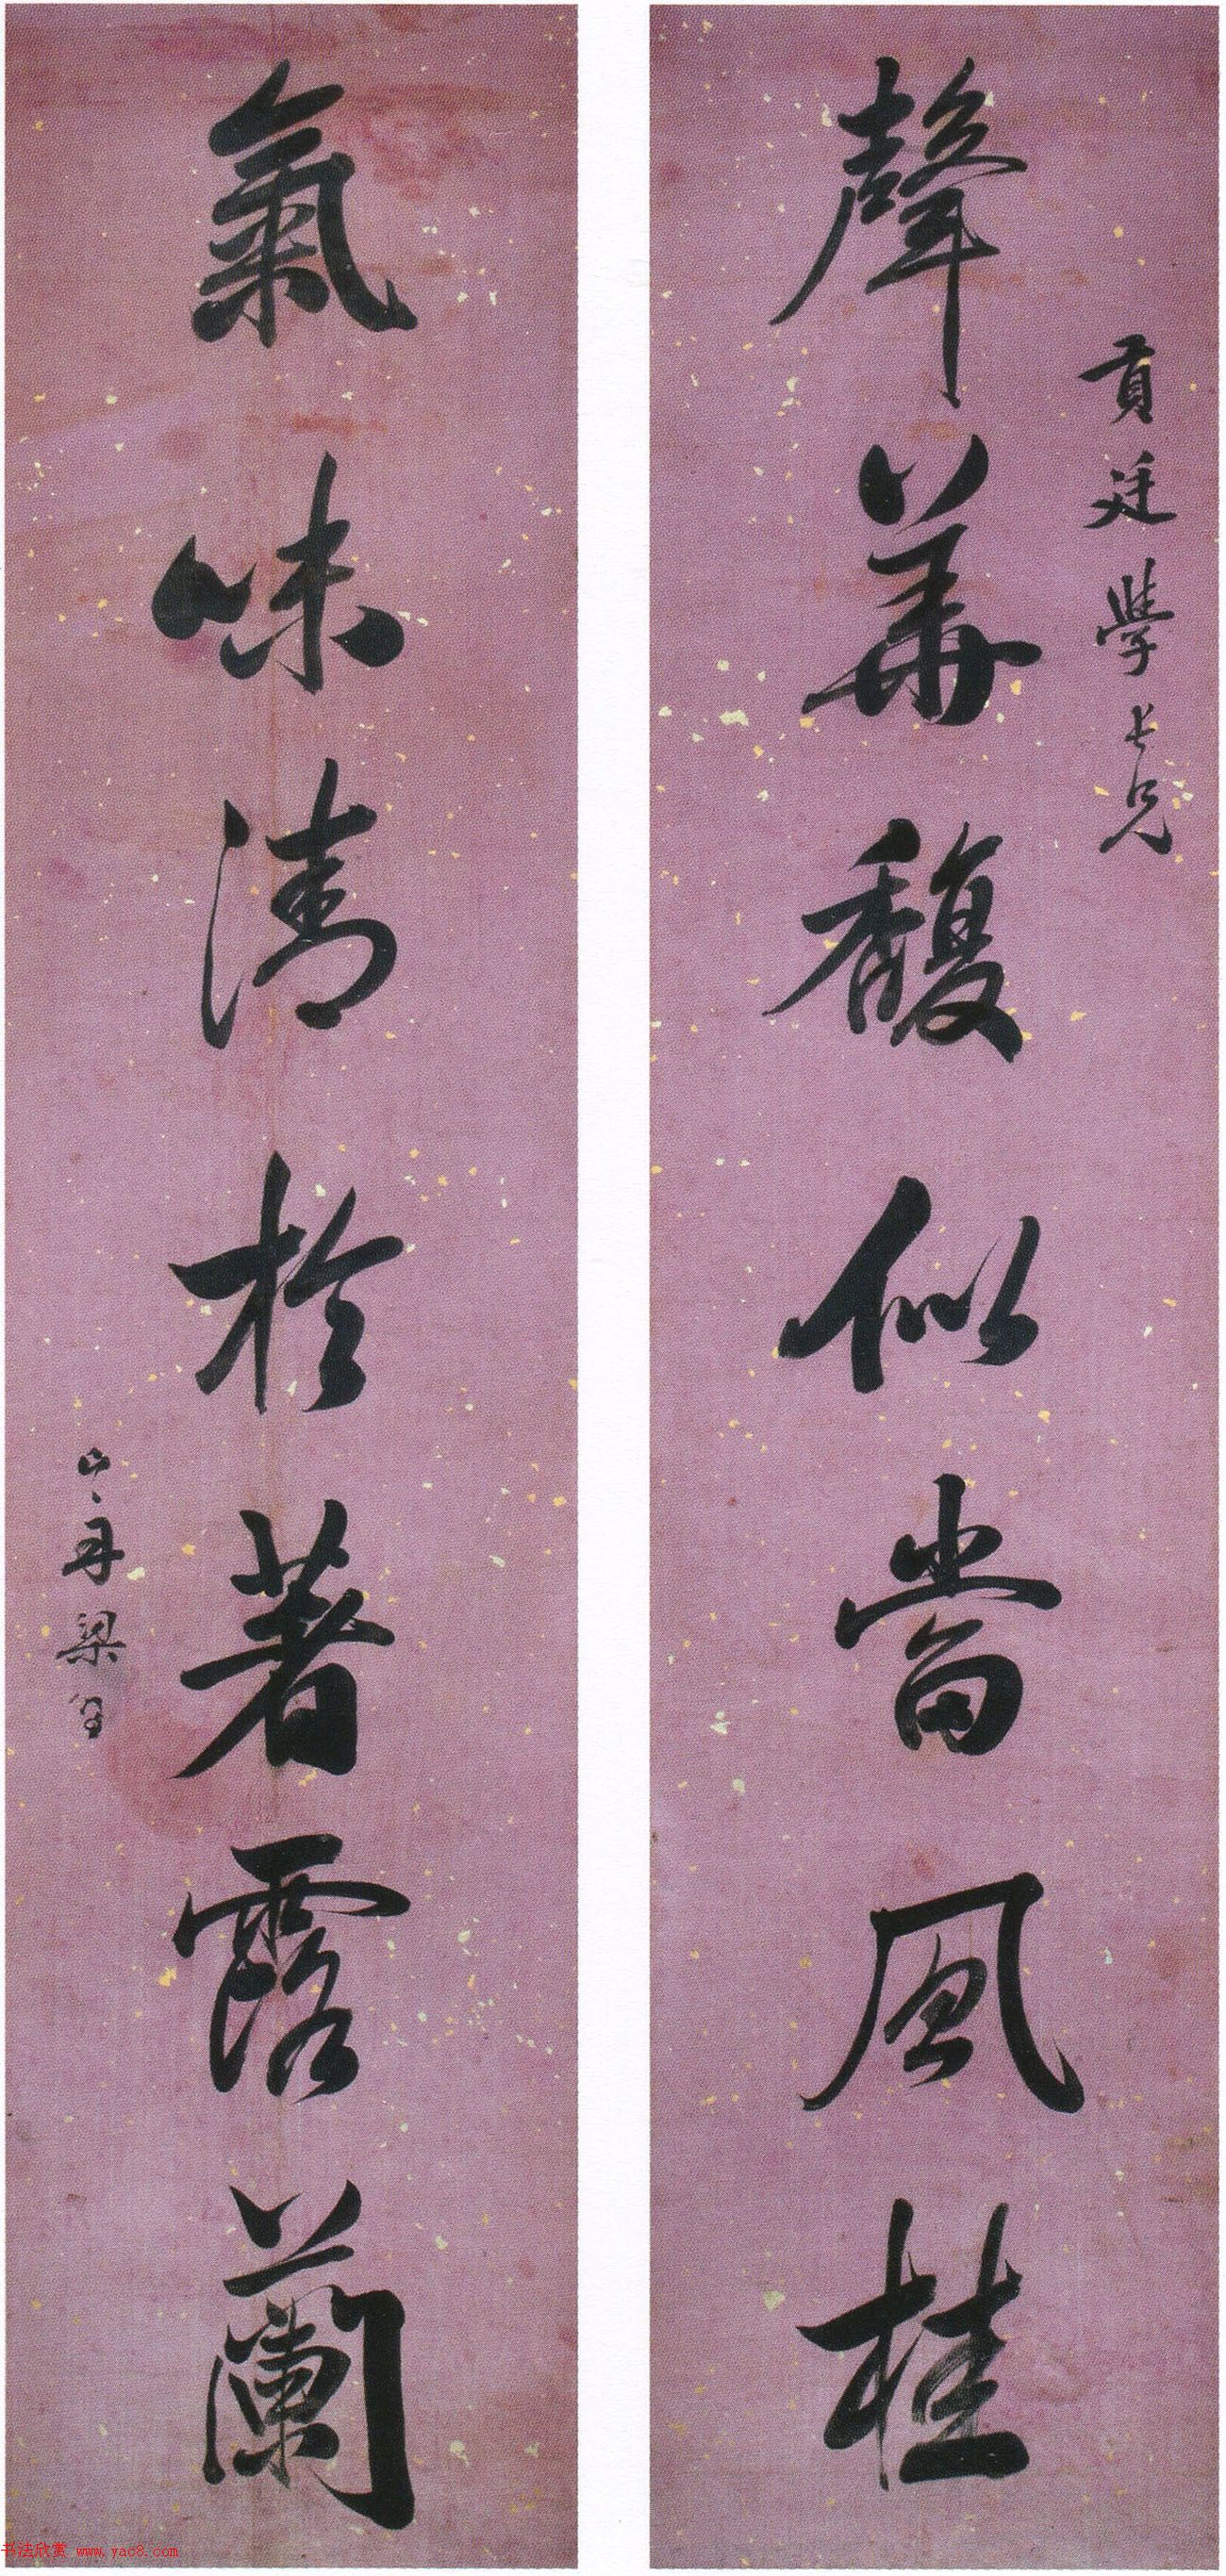 貢廷學長兄
聲華馥似當風桂
氣味清於著露蘭
山舟梁同書
书法欣赏 www.yac8.com